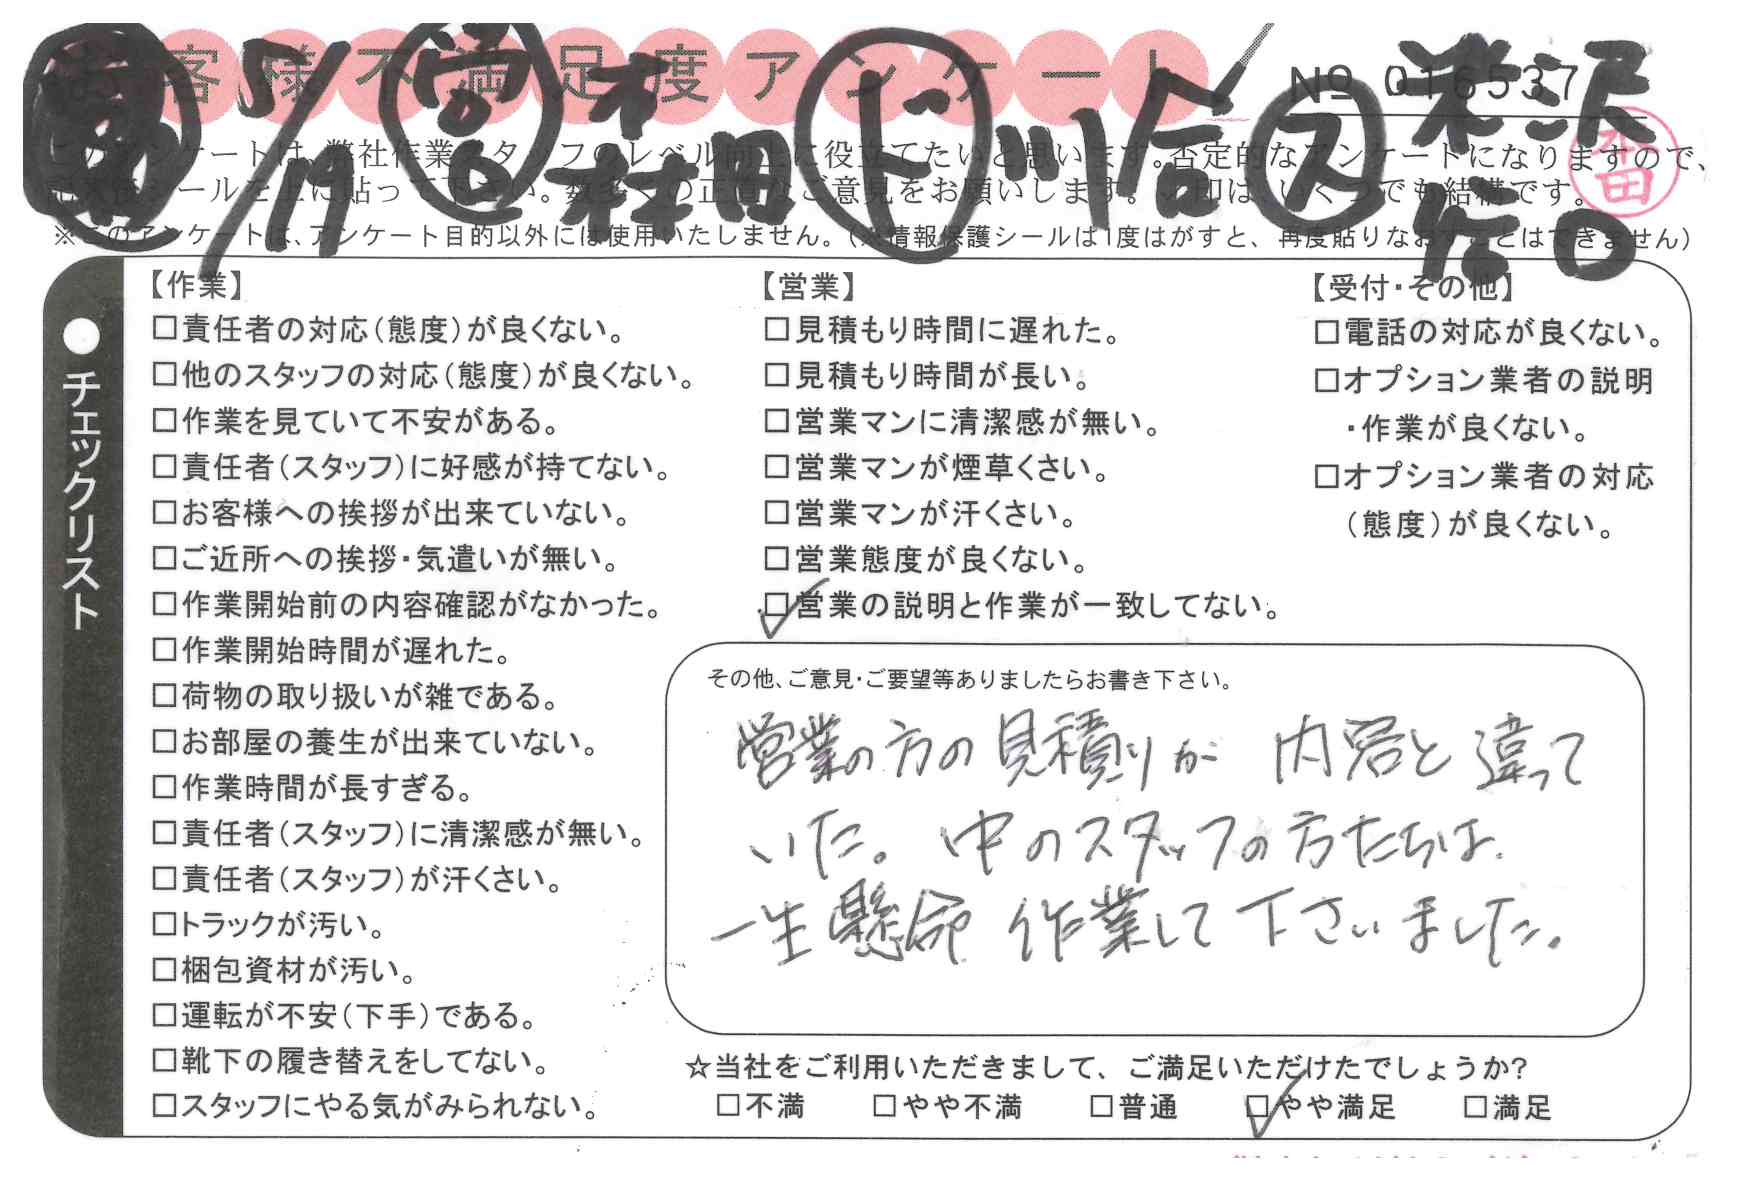 お客様不満足度アンケート
№ 016537
5/19 営 木村田 ド 川合 ス 米沢
本田
このアンケートは、弊社作業スタッフのレベル向上に役立てたいと思います。否定的なアンケートになりますので、
シールを上に貼って下さい。数多くの正直なご意見をお願いします。✓印は、いくつでも結構です。
※このアンケートは、アンケート目的以外には使用いたしません。(※情報保護シールは1度はがすと、再度貼りなおすことはできません)
●チェックリスト
【作業】
□責任者の対応(態度)が良くない。
□他のスタッフの対応(態度)が良くない。
□作業を見ていて不安がある。
□責任者(スタッフ)に好感が持てない。
□お客様への挨拶が出来ていない。
□ご近所への挨拶・気遣いが無い。
□作業開始前の内容確認がなかった。
□作業開始時間が遅れた。
□荷物の取り扱いが雑である。
□お部屋の養生が出来ていない。
□作業時間が長すぎる。
□責任者(スタッフ)に清潔感が無い。
□責任者(スタッフ)が汗くさい。
□トラックが汚い。
□梱包資材が汚い。
□運転が不安(下手)である。
□靴下の履き替えをしてない。
□スタッフにやる気がみられない。
【営業】
□見積もり時間に遅れた。
□見積もり時間が長い。
□営業マンに清潔感が無い。
□営業マンが煙草くさい。
□営業マンが汗くさい。
□営業態度が良くない。
☑営業の説明と作業が一致してない。
【受付・その他】
□電話の対応が良くない。
□オプション業者の説明
・作業が良くない。
□オプション業者の対応
(態度)が良くない。
その他、ご意見・ご要望等ありましたらお書き下さい。
営業の方の見積りが 内容と違って
いた。中のスタッフの方たちは、
一生懸命 作業して下さいました。
☆当社をご利用いただきまして、ご満足いただけたでしょうか?
□不満 □やや不満 □普通 ☑やや満足 □満足